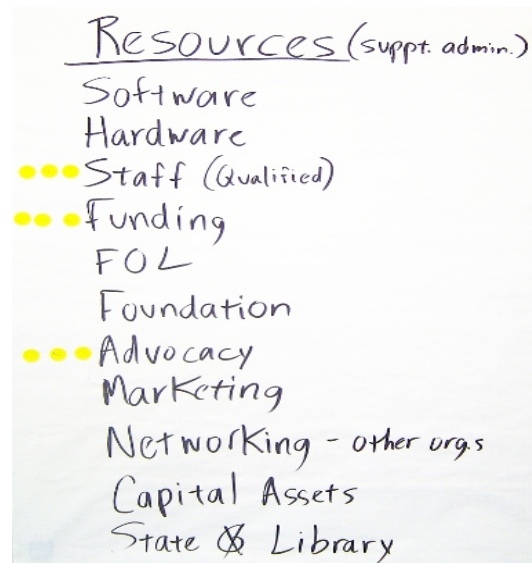 Resources (suppt. admin.)
Software
Hardware
Staff (Qualified)
Funding
FOL
Foundation
Advocacy
Marketing
Networking - other orgs
Capital Assets
State Library